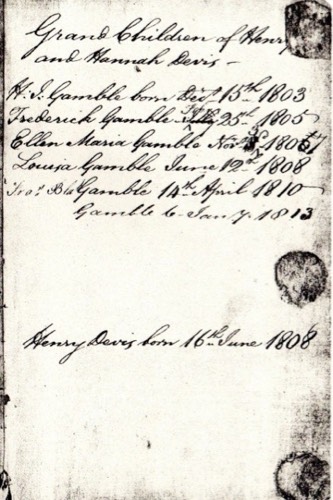 Grand Children of Henry
and Hannah Devis -
H. J. Gamble born 15th 1803
Frederick Gamble 25th 1805
Ellen Maria Gamble Nov
Louisa Gamble June 12th 1808
Gamble 14th April 1810
Gamble b Jan 7. 1813
Henry Devis born 16th June 1808